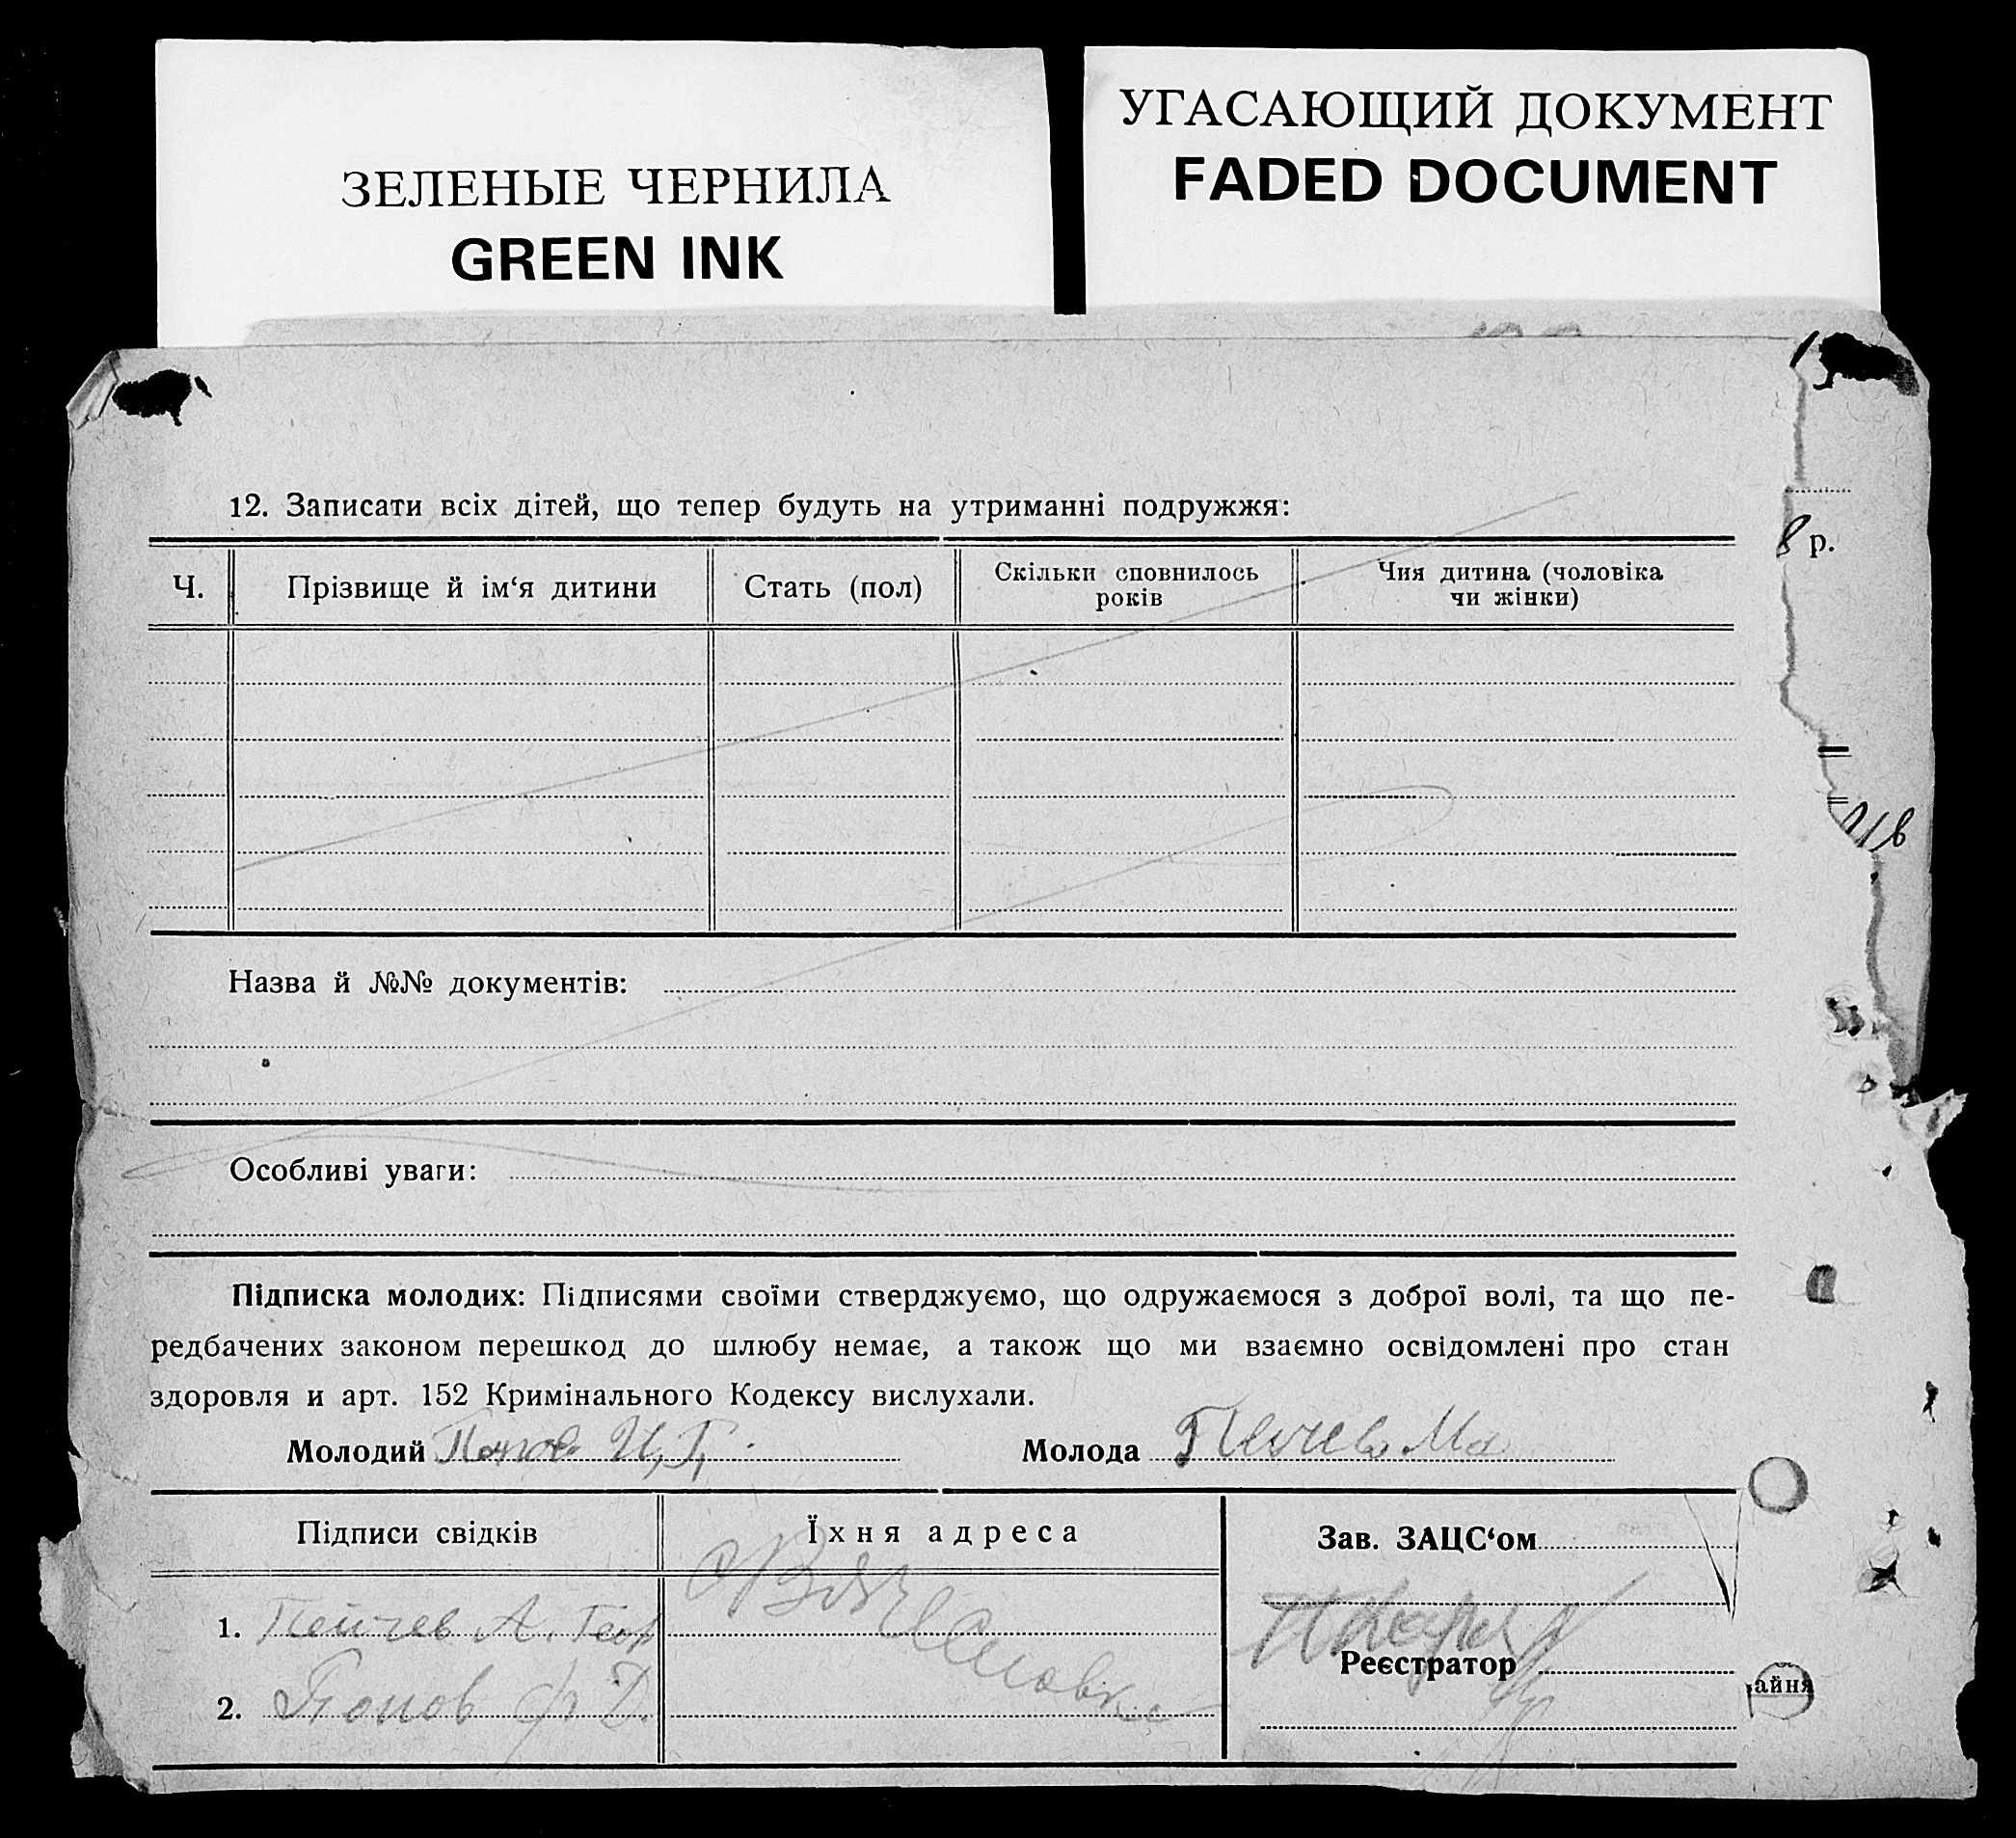 ЗЕЛЕНЫЕ ЧЕРНИЛА
GREEN INK
УГАСАЮЩИЙ ДОКУМЕНТ
FADED DOCUMENT
12. Записати всіх дітей, що тепер будуть на утриманні подружжя:
8 р.
Ч.
Прізвище й ім‘я дитини
Стать (пол)
Скільки сповнилось
років
Чия дитина (чоловіка
чи жінки)
Назва й №№ документів:
Особливі уваги:
Підписка молодих: Підписями своїми стверджуємо, що одружаємося з доброї волі, та що пе-
редбачених законом перешкод до шлюбу немає, а також що ми взаємно освідомлені про стан
здоровля и арт. 152 Кримінального Кодексу вислухали.
Молодий И. Г.
Молода
Підписи свідків
Їхня адреса
Зав. ЗАЦС‘ом
1. Пейчев А. Геор
Реєстратор
2. Попов Ф Д.
айня